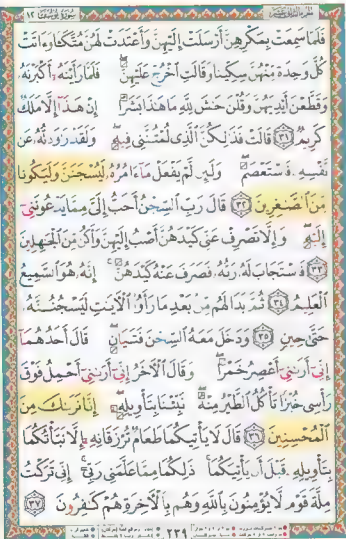 سورة يوسف ١٢
فَلَمَّا سَمِعَتْ بِمَكْرِهِنَّ أَرْسَلَتْ إِلَيْهِنَّ وَأَعْتَدَتْ لَهُنَّ مُتَّكَـًٔا وَءَاتَتْ
كُلَّ وَٰحِدَةٍ مِّنْهُنَّ سِكِّينًا وَقَالَتِ ٱخْرُجْ عَلَيْهِنَّ ۖ فَلَمَّا رَأَيْنَهُۥٓ أَكْبَرْنَهُۥ
وَقَطَّعْنَ أَيْدِيَهُنَّ وَقُلْنَ حَٰشَ لِلَّهِ مَا هَٰذَا بَشَرًا إِنْ هَٰذَآ إِلَّا مَلَكٌ
كَرِيمٌ ٣١ قَالَتْ فَذَٰلِكُنَّ ٱلَّذِى لُمْتُنَّنِى فِيهِ ۖ وَلَقَدْ رَٰوَدتُّهُۥ عَن
نَّفْسِهِۦ فَٱسْتَعْصَمَ ۖ وَلَئِن لَّمْ يَفْعَلْ مَآ ءَامُرُهُۥ لَيُسْجَنَنَّ وَلَيَكُونًا
مِّنَ ٱلصَّٰغِرِينَ ٣٢ قَالَ رَبِّ ٱلسِّجْنُ أَحَبُّ إِلَىَّ مِمَّا يَدْعُونَنِىٓ
إِلَيْهِ ۖ وَإِلَّا تَصْرِفْ عَنِّى كَيْدَهُنَّ أَصْبُ إِلَيْهِنَّ وَأَكُن مِّنَ ٱلْجَٰهِلِينَ
٣٣ فَٱسْتَجَابَ لَهُۥ رَبُّهُۥ فَصَرَفَ عَنْهُ كَيْدَهُنَّ ۚ إِنَّهُۥ هُوَ ٱلسَّمِيعُ
ٱلْعَلِيمُ ٣٤ ثُمَّ بَدَا لَهُم مِّنۢ بَعْدِ مَا رَأَوُا۟ ٱلْـَٔايَٰتِ لَيَسْجُنُنَّهُۥ
حَتَّىٰ حِينٍ ٣٥ وَدَخَلَ مَعَهُ ٱلسِّجْنَ فَتَيَانِ ۖ قَالَ أَحَدُهُمَآ
إِنِّىٓ أَرَىٰنِىٓ أَعْصِرُ خَمْرًا ۖ وَقَالَ ٱلْـَٔاخَرُ إِنِّىٓ أَرَىٰنِىٓ أَحْمِلُ فَوْقَ
رَأْسِى خُبْزًا تَأْكُلُ ٱلطَّيْرُ مِنْهُ ۖ نَبِّئْنَا بِتَأْوِيلِهِۦٓ ۖ إِنَّا نَرَىٰكَ مِنَ
ٱلْمُحْسِنِينَ ٣٦ قَالَ لَا يَأْتِيكُمَا طَعَامٌ تُرْزَقَانِهِۦٓ إِلَّا نَبَّأْتُكُمَا
بِتَأْوِيلِهِۦ قَبْلَ أَن يَأْتِيَكُمَا ۚ ذَٰلِكُمَا مِمَّا عَلَّمَنِى رَبِّىٓ ۚ إِنِّى تَرَكْتُ
مِلَّةَ قَوْمٍ لَّا يُؤْمِنُونَ بِٱللَّهِ وَهُم بِٱلْـَٔاخِرَةِ هُمْ كَٰفِرُونَ ٣٧
٢٣٩